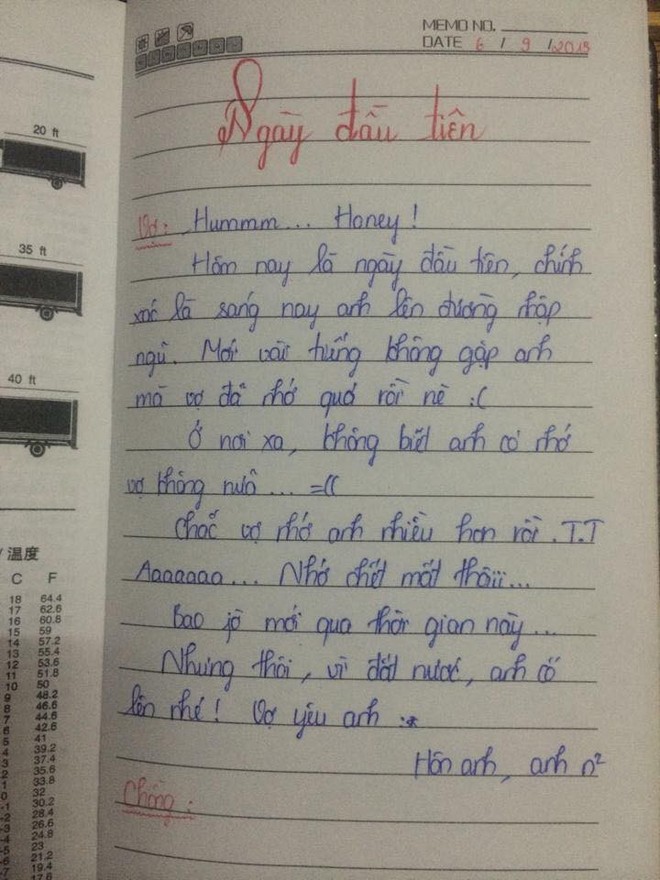 MEMO NO.
DATE 6 / 9 / 2015
Ngày đầu tiên
Vợ: Hummm... Honey!
Hôm nay là ngày đầu tiên, chính
xác là sáng nay anh lên đường nhập
ngũ. Mới vài tiếng không gặp anh
mà vợ đã nhớ quá rồi nè :(
Ở nơi xa, không biết anh có nhớ
vợ không nữa ... =((
Chắc vợ nhớ anh nhiều hơn rồi. T.T
Aaaaaaa... Nhớ chết mất thôiii...
Bao jờ mới qua thời gian này...
Nhưng thôi, vì đất nước, anh cố
lên nhé! Vợ yêu anh :*
Hôn anh, anh n²
Chồng:
20 ft
35 ft
40 ft
/ 温度
C F
18 64.4
17 62.6
16 60.8
15 59
14 57.2
13 55.4
12 53.6
11 51.8
10 50
9 48.2
8 46.6
7 44.6
6 42.6
5 41
4 39.2
3 37.4
2 35.6
1 33.8
0 32
-1 30.2
-2 28.4
-3 26.6
-4 24.8
-5 23
-6 21.2
-7 19.4
17.6